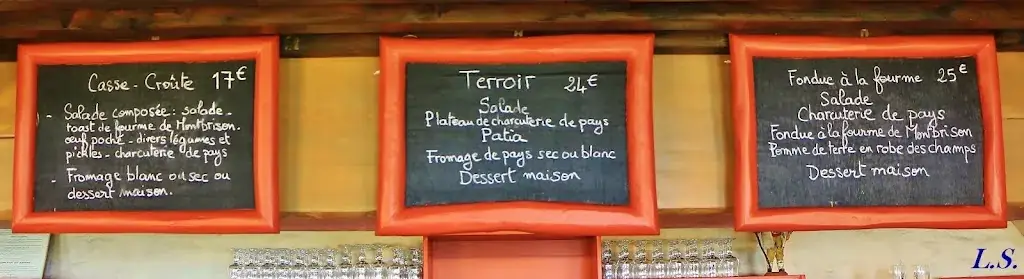 Casse-Croûte 17€
- Salade composée : salade -
toast de fourme de Montbrison -
œuf poché - divers légumes et
pickles - charcuterie de pays
- Fromage blanc ou sec ou
dessert maison.
Terroir 24€
Salade
Plateau de charcuterie de pays
Patia
Fromage de pays sec ou blanc
Dessert maison
Fondue à la fourme 25€
Salade
Charcuterie de pays
Fondue à la fourme de Montbrison
Pomme de terre en robe des champs
Dessert maison
L.S.